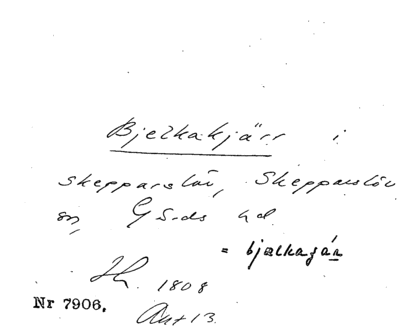 Bjelkakjärr i
Skepparslöv, Skepparslöv
sn, Gärds hd.
= bjelkagån
1808
Nr 7906. Akt 13.